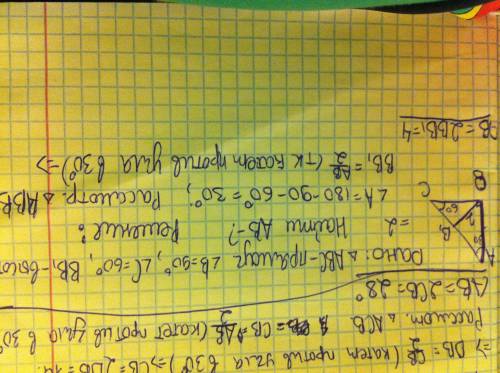 => DB = CB/2 (катет против угла в 30°) => CB = 2DB =
Рассмот. △ACB CB = AB/2 (катет против угла в 30°
AB = 2CB = 28°
Дано: △ABC-прямоуг ∠B=90°, ∠C=60°, BB₁-высот
= 2 Найти AB-?
Решение:
∠A = 180-90-60° = 30°, Рассмотр. △ABB
BB₁ = AB/2 (тк катет против угла в 30°) =>
AB = 2BB₁ = 4
A
B₁
2
60°
B
C